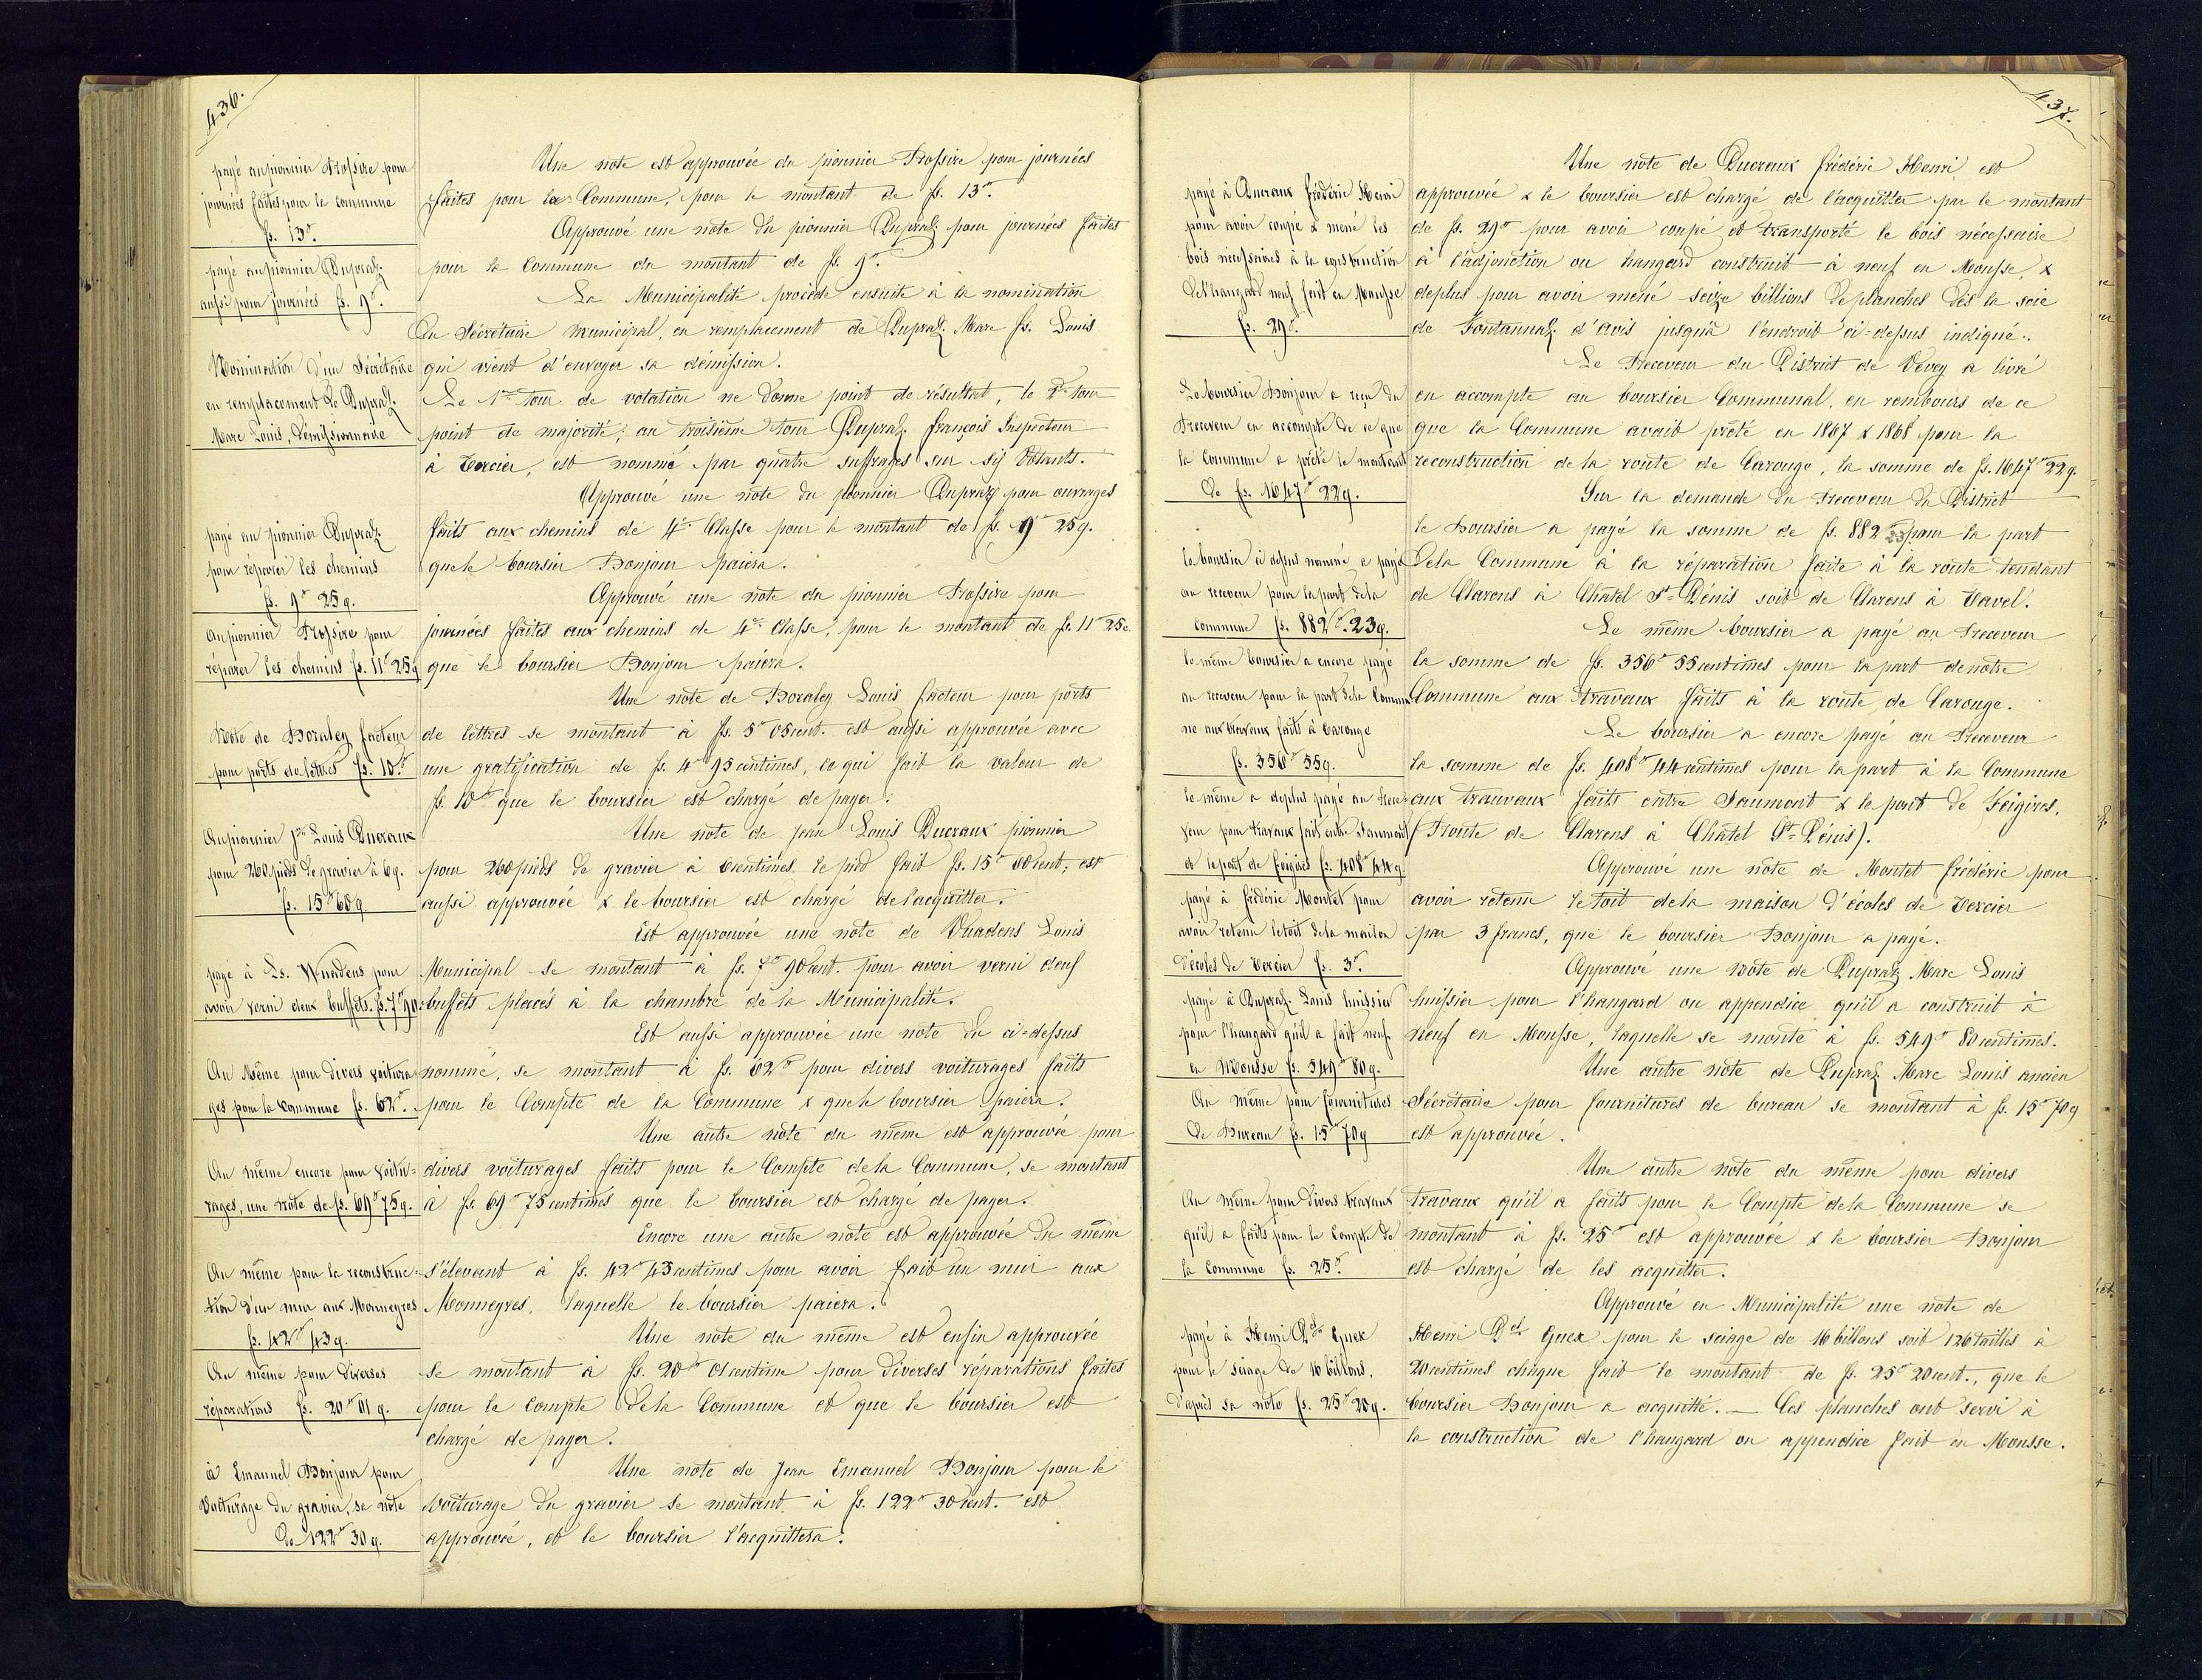 436.
payé au pionnier Rossire pour
journées faites pour la commune
fs. 13"
payé au pionnier Dupraz
aussi pour journées fs. 9"
Nomination d'un Sécrétaire
en remplacement de Dupraz
Marc Louis, démissionnaire
payé au pionnier Dupraz
pour réparer les chemins
fs. 9" 25 g.
Au pionnier Rossire pour
réparer les chemins fs. 11" 25 g
Note de Boraley facteur
pour ports de lettres fs. 10"
Au pionnier Jn Louis Ducraux
pour 260 pieds de gravier à 6 g.
fs. 15" 60 g
payé à Ls. Vuadens pour
avoir verni deux buffets. fs. 7" 90.
Au Même pour divers voitura
ges pour la Commune fs. 62"
Au même encore pour voitu=
rages, une note de fs. 69" 75 g.
Au même pour la reconstruc=
tion d'un mur aux Monneyres
fs. 42" 43 g.
Au même pour diverses
réparations fs. 20" 01 g.
à Emanuel Bonjour pour
Voiturage du gravier, se note
de 122" 30 g.
Une note est approuvée du pionnier Rossire pour journées
faites pour la Commune, pour le montant de fs. 13"
Approuvé une note du pionnier Dupraz pour journées faites
pour la Commune du montant de fs. 9"
La Municipalité procède ensuite à la nomination
du Sécretaire municipal, en remplacement de Dupraz Marc fs. Louis
qui vient d'envoyer sa démission.
Le 1er tour de votation ne donne point de résultat, le 2e tour
point de majorité; au troisième tour Dupraz François Inspecteur
à Tercier, est nommé par quatre suffrages sur six Votants.
Approuvé une note du pionnier Dupraz pour ouvrages
faits aux chemins de 4e Classe pour le montant de fs. 9" 25 g.
que le boursier Bonjour paiera.
Approuvé une note du pionnier Rossire pour
journées faites aux chemins de 4e Classe, pour le montant de fs. 11" 25 c
que le boursier Bonjour paiera.
Une note de Boraley Louis facteur pour ports
de lettres se montant à fs. 5" 05 cent. est aussi approuvée avec
une gratification de fs. 4" 95 centimes, ce qui fait la valeur de
fs. 10" que le boursier est chargé de payer.
Une note de jean Louis Ducraux pionnier
pour 260 pieds de gravier à 6 centimes le pied fait fs. 15" 60 cent, est
aussi approuvée & le boursier est chargé de l'acquitter.
Est approuvée une note de Vuadens Louis
Municipal se montant à fs. 7" 90 cent. pour avoir verni deux
buffets placés à la chambre de la Municipalité.
Est aussi approuvée une note du ci=dessus
nommé, se montant à fs. 62" pour divers voiturages faits
pour le Compte de la Commune & que le boursier paiera.
Une autre note du même est approuvée pour
divers voiturages faits pour le Compte de la Commune, se montant
à fs. 69" 75 centimes que le boursier est chargé de payer.
Encore une autre note est approuvée du même
s'élevant à fs. 42" 43 centimes pour avoir fait un mur aux
Monneyres, laquelle le boursier paiera.
Une note du même est enfin approuvée
se montant à fs. 20" 01 centime pour diverses réparations faites
pour le Compte de la Commune et que le boursier est
chargé de payer.
Une note de Jean Emanuel Bonjour pour le
voiturage du gravier se montant à fs. 122" 30 cent. est
approuvée, et le boursier l'acquittera.
437.
payé à Ducraux Frédéric Henri
pour avoir coupé & mené les
bois nécessaires à la construction
de l'hangard neuf fait en Mousse
fs. 29"
Le boursier Bonjour a reçu du
Receveur en accompte de ce que
la Commune a prêté le montant
de fs. 1647" 22 g.
le boursier ci dessus nommé a payé
au receveur pour la part de la
Commune fs. 882" 23 g.
le même boursier a encore payé
au receveur pour la part de la Commu
ne aux travaux faits à Carouge
fs. 356" 55 g.
le même a deplus payé au Rece=
veur pour travaux faits entre Saumont
et le pont de Feigires fs. 408" 44 g.
payé à Frédéric Montet pour
avoir retenu le toit de la maison
d'écoles de Tercier fs. 3"
payé à Dupraz Louis huissier
pour l'hangard qu'il a fait neuf
en Mousse fs. 549" 80 g.
Au même pour fournitures
de Bureau fs. 15" 70 g
Au même pour divers travaux
qu'il a faits pour le Compte de
la Commune fs. 25"
payé à Henri Del Guex
pour le sciage de 16 billons,
d'après sa note fs. 25" 20 g.
Une note de Ducraux Frédéric Henri, est
approuvée & le boursier est chargé de l'acquitter par le montant
de fs. 29" pour avoir coupé et transporté le bois nécessaire
à l'adjonction ou hangard construit à neuf en Mousse, &
deplus pour avoir mené seize billions de planches dès la scie
de Fontannaz d'avis jusqu'à l'endroit ci=dessus indiqué.
Le Receveur du District de Vevey a livré
en accompte au boursier Communal, en rembours de ce
que la Commune avait prêté en 1867 & 1868 pour la
reconstruction de la route de Carouge, la somme de fs. 1647" 22 g.
Sur la demande du Receveur du District
le Boursier a payé la somme de fs. 882" 23 pour la part
de la Commune à la réparation faite à la route tendant
de Clarens à Châtel St=Dénis soit de Clarens à Tavel.
Le même boursier a payé au Receveur
la somme de fs. 356" 55 centimes pour la part de notre
Commune aux travaux faits à la route de Carouge.
Le boursier a encore payé au Receveur
la somme de fs. 408" 44 centimes pour la part à la Commune
aux trauvaux faits entre Saumont & le pont de Feigires,
(Route de Clarens à Châtel St=Dénis).
Approuvé une note de Montet Frédéric pour
avoir retenu le toit de la maison d'écoles de Tercier
par 3 francs, que le boursier Bonjour a payé.
Approuvé une Note de Dupraz Marc Louis
huissier pour l'hangard ou appendice qu'il a construit à
neuf en Mousse, laquelle se monte à fs. 549" 80 centimes.
Une autre note de Dupraz Marc Louis ancien
Sécrétaire pour fournitures de bureau se montant à fs. 15" 70 g
est approuvée.
Une autre note du même pour divers
travaux qu'il a faits pour le Compte de la Commune se
montant à fs. 25" est approuvée & le boursier Bonjour
est chargé de les acquitter.
Approuvé en Municipalité une note de
Henri Del Guex pour le sciage de 16 billons soit 126 tailles à
20 centimes chaque fait le montant de fs. 25" 20 cent., que le
boursier Bonjour a acquitté. — Ces planches ont servi à
la construction de l'hangard ou appendice fait en Mousse.